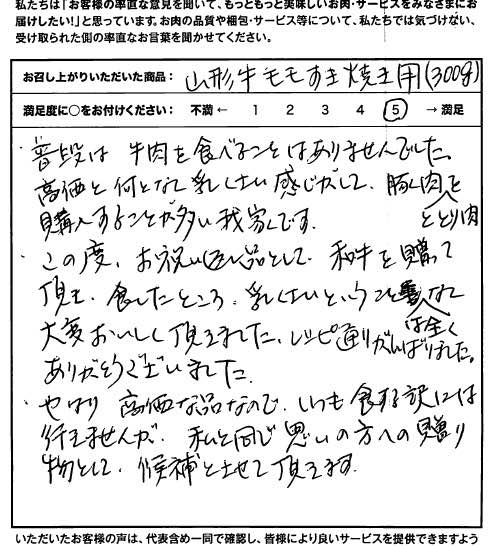 私たちは「お客様の率直な意見を聞いて、もっともっと美味しいお肉・サービスをみなさまにお
届けしたい!」と思っています。お肉の品質や梱包・サービス等について、私たちでは気づけない、
受け取られた側の率直なお言葉を聞かせてください。
お召し上がりいただいた商品: 山形牛モモすき焼き用(300g)
満足度に○をお付けください: 不満 ← 1 2 3 4 5 → 満足
・普段は 牛肉を食べることはありませんでした。
高価と何となく乳くさい感じがして、豚肉を
ととり肉
購入することが多い我家です。
・この度、お祝い返し品として、和牛を贈って
頂き、食したところ、乳くさいということはなく
は全く
大変おいしく頂きました。レシピ通りがんばりました。
ありがとうございました。
・やはり 高価な品なので、いつも食する訳には
行きませんが、私と同じ思いの方への贈り
物として、候補とさせて頂きます。
いただいたお客様の声は、代表含め一同で確認し、皆様により良いサービスを提供できますよう